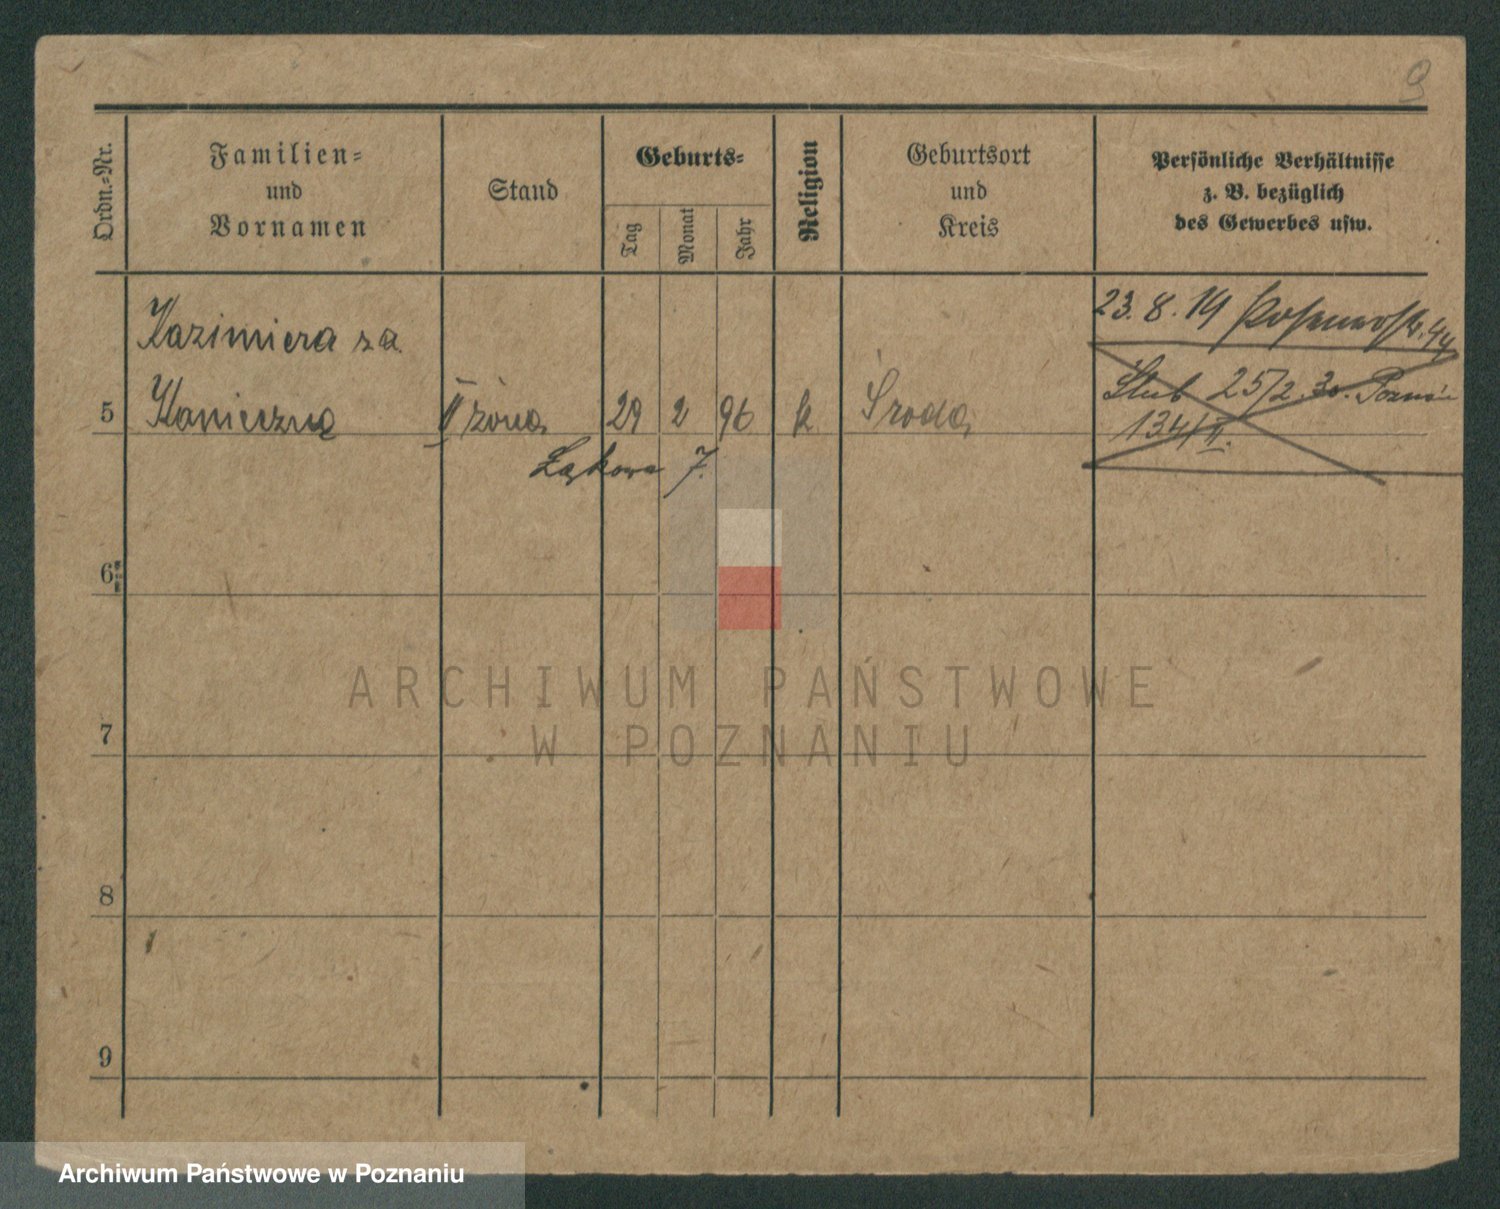 9
Ordn.=Nr.
Familien=
und
Vornamen
Stand
Geburts=
Tag
Monat
Jahr
Religion
Geburtsort
und
Kreis
Persönliche Verhältnisse
z. B. bezüglich
des Gewerbes usw.
Kazimiera za
23. 8. 19 44
5 Konieczną II żona 29 2 96 k Środa
Ślub 25/2. 30. Poznań
134/II.
Łąkowa 7.
6
7
8
9
ARCHIWUM PAŃSTWOWE
W POZNANIU
Archiwum Państwowe w Poznaniu